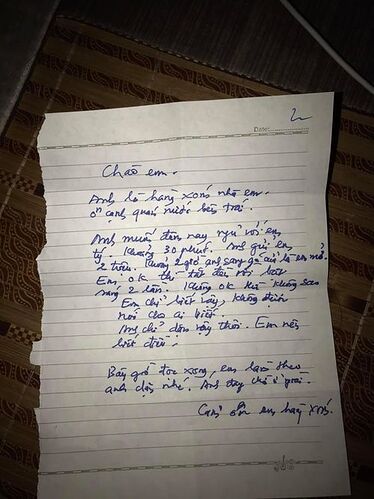 2
Date:
Chào em.
Anh là hàng xóm nhà em.
ở cạnh quán nước bên trái.
Anh muốn đêm nay ngủ với em
tý. Khoảng 30 phút. Anh gửi em
2 triệu. Khoảng 2 giờ anh sang gõ cửa là em mở.
Em ok thì tắt đèn rồi bật
sáng 2 lần. Không ok thì không sao
Em chỉ biết vậy. Không được
nói cho ai biết.
Anh chỉ dặn vậy thôi. Em nên
biết điều.
Bây giờ đọc xong, em làm theo
anh dặn nhé. Anh đang chờ ở
Cảm ơn em hàng xóm.